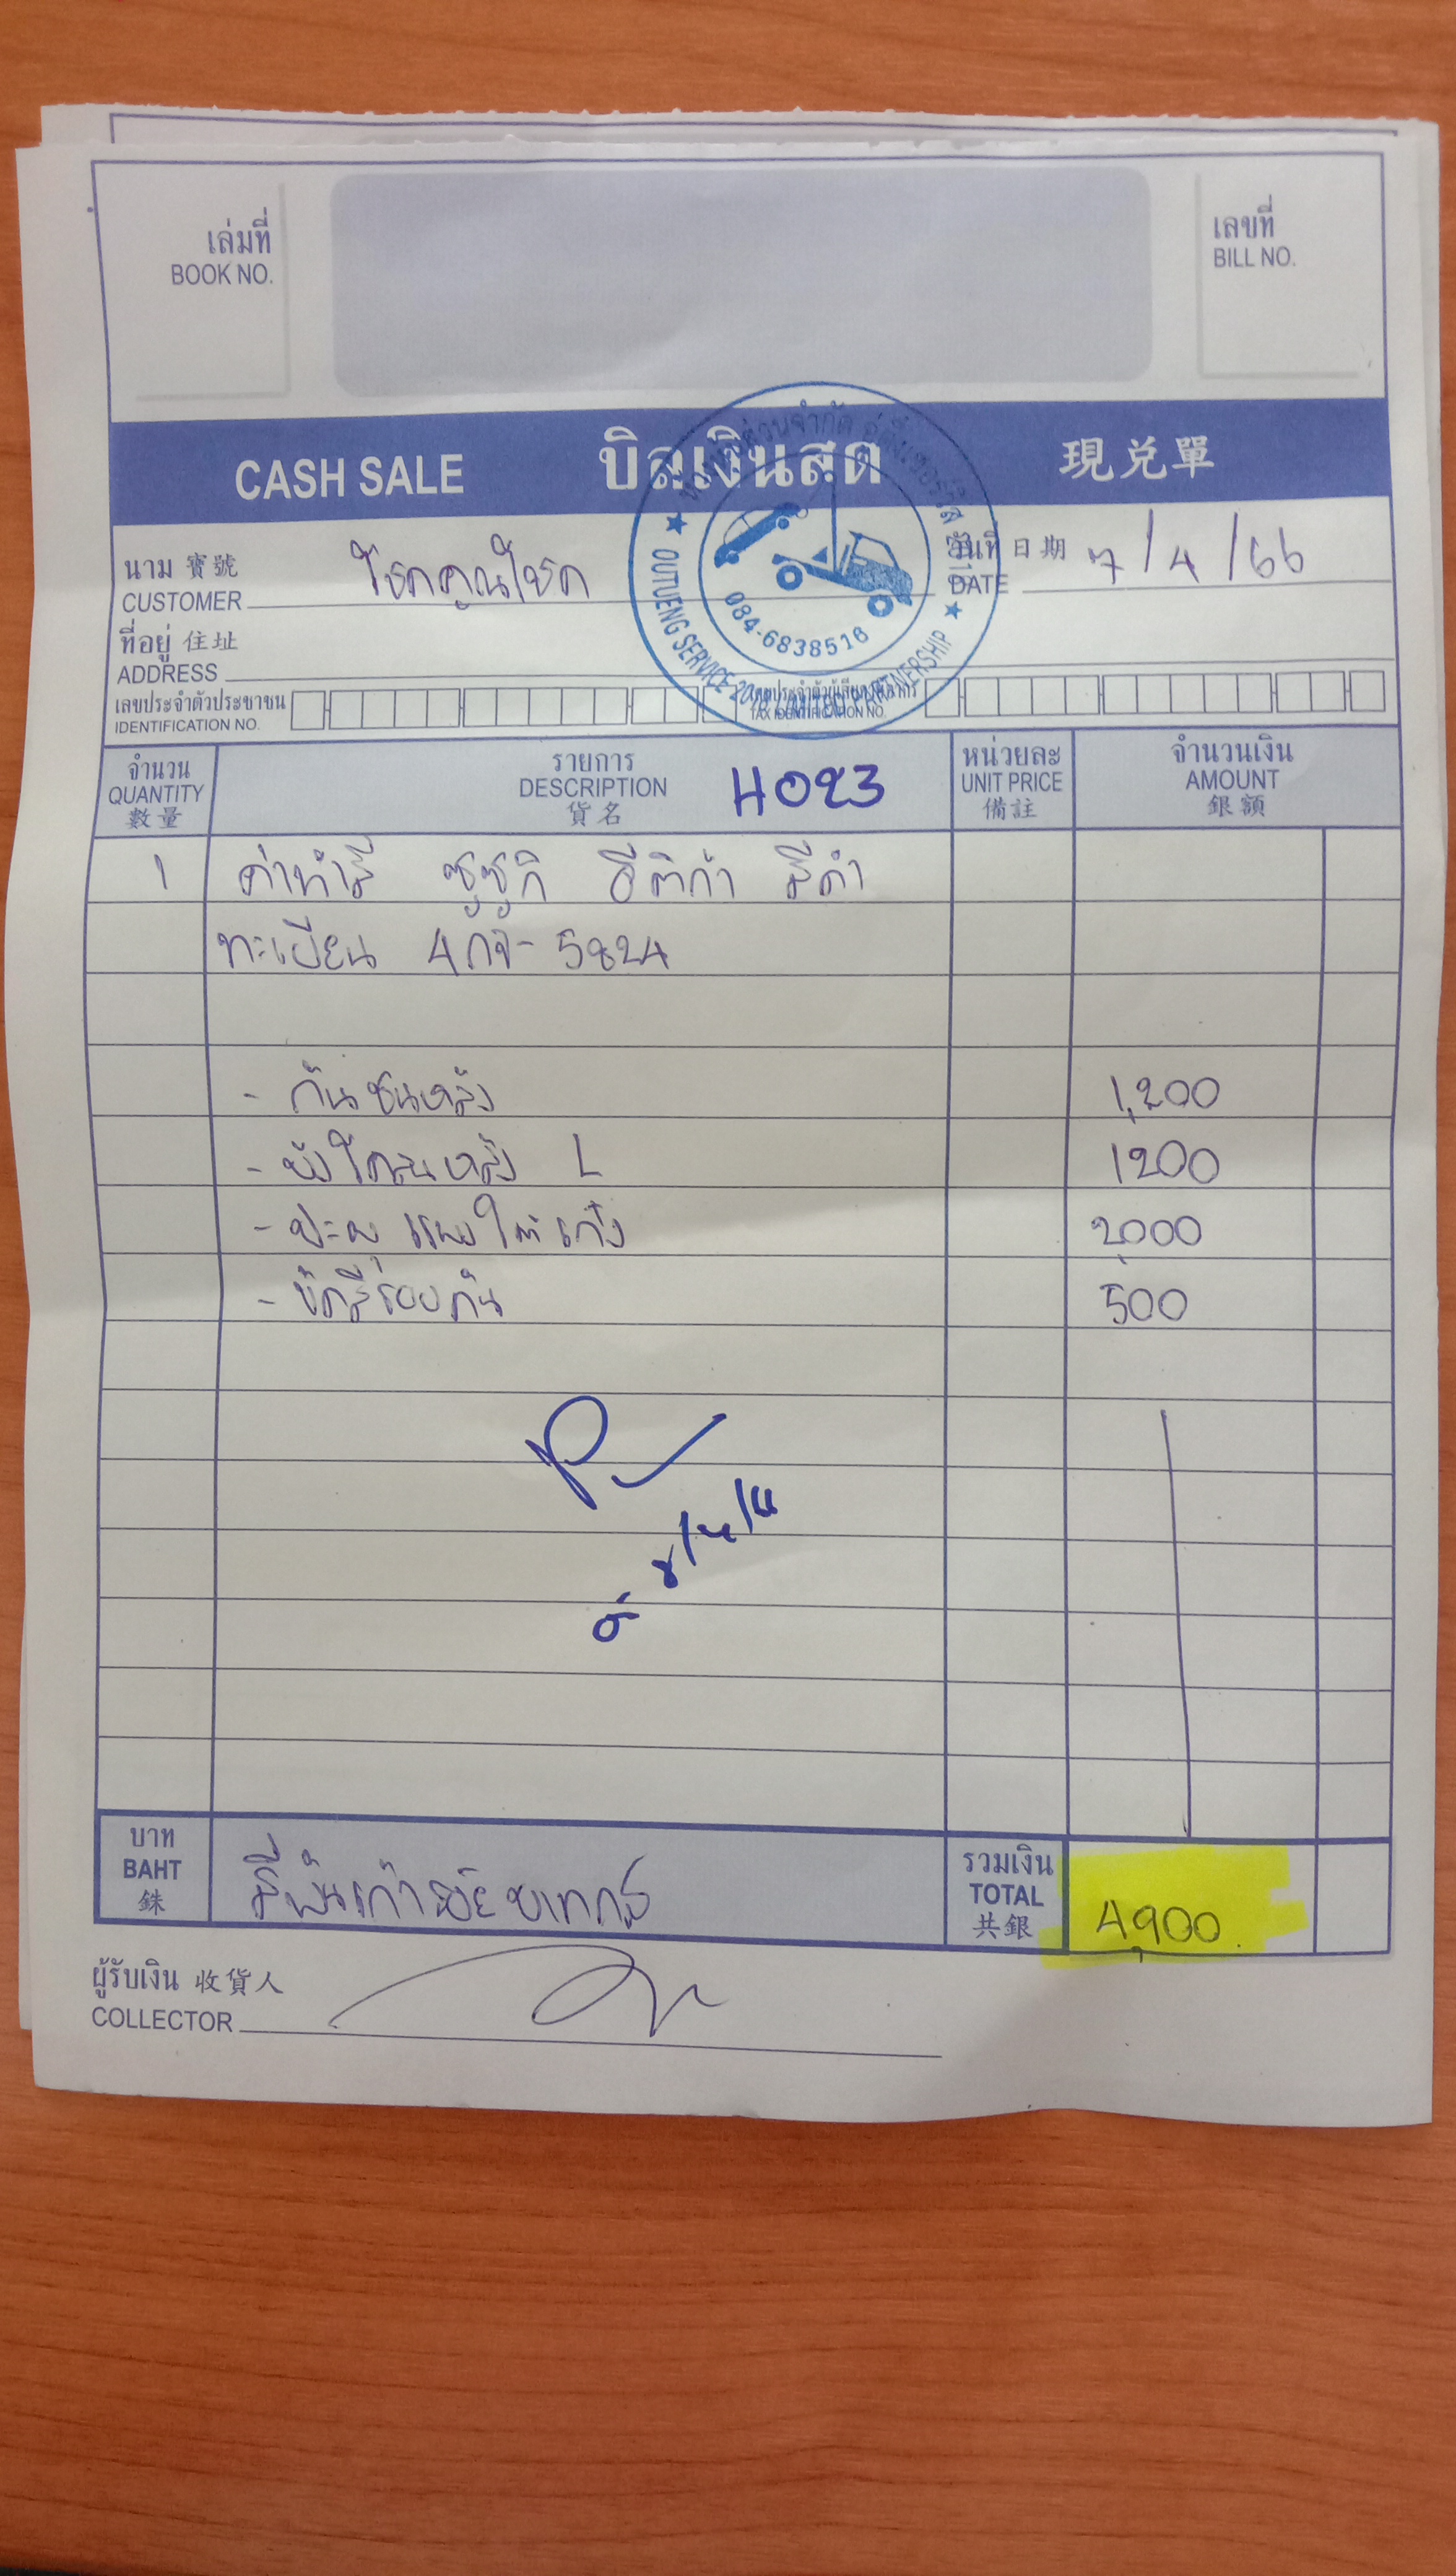 เล่มที่
BOOK NO.
เลขที่
BILL NO.
CASH SALE บิลเงินสด 現兌單
นาม 寶號
CUSTOMER โชคคูณโชค
วันที่ 日期
DATE 7/4/66
ที่อยู่ 住址
ADDRESS
เลขประจำตัวประชาชน
IDENTIFICATION NO.
เลขประจำตัวผู้เสียภาษีอากร
TAX IDENTIFICATION NO.
OUTUENG SERVICE LIMITED PARTNERSHIP
084-6838516
จำนวน
QUANTITY
數量
รายการ
DESCRIPTION
貨名
H023
หน่วยละ
UNIT PRICE
備註
จำนวนเงิน
AMOUNT
銀額
1 ค่าทำสี ซูซูกิ สีดำ
ทะเบียน 5824
- กันชนหลัง 1,200
- บังโคลนหลัง L 1200
- ปะผุ แผงใต้เก๋ง 2,000
- ขัดสีรอบคัน 500
บาท
BAHT
銖
สี่พันเก้าร้อยบาท
รวมเงิน
TOTAL
共銀
4,900
ผู้รับเงิน 收貨人
COLLECTOR